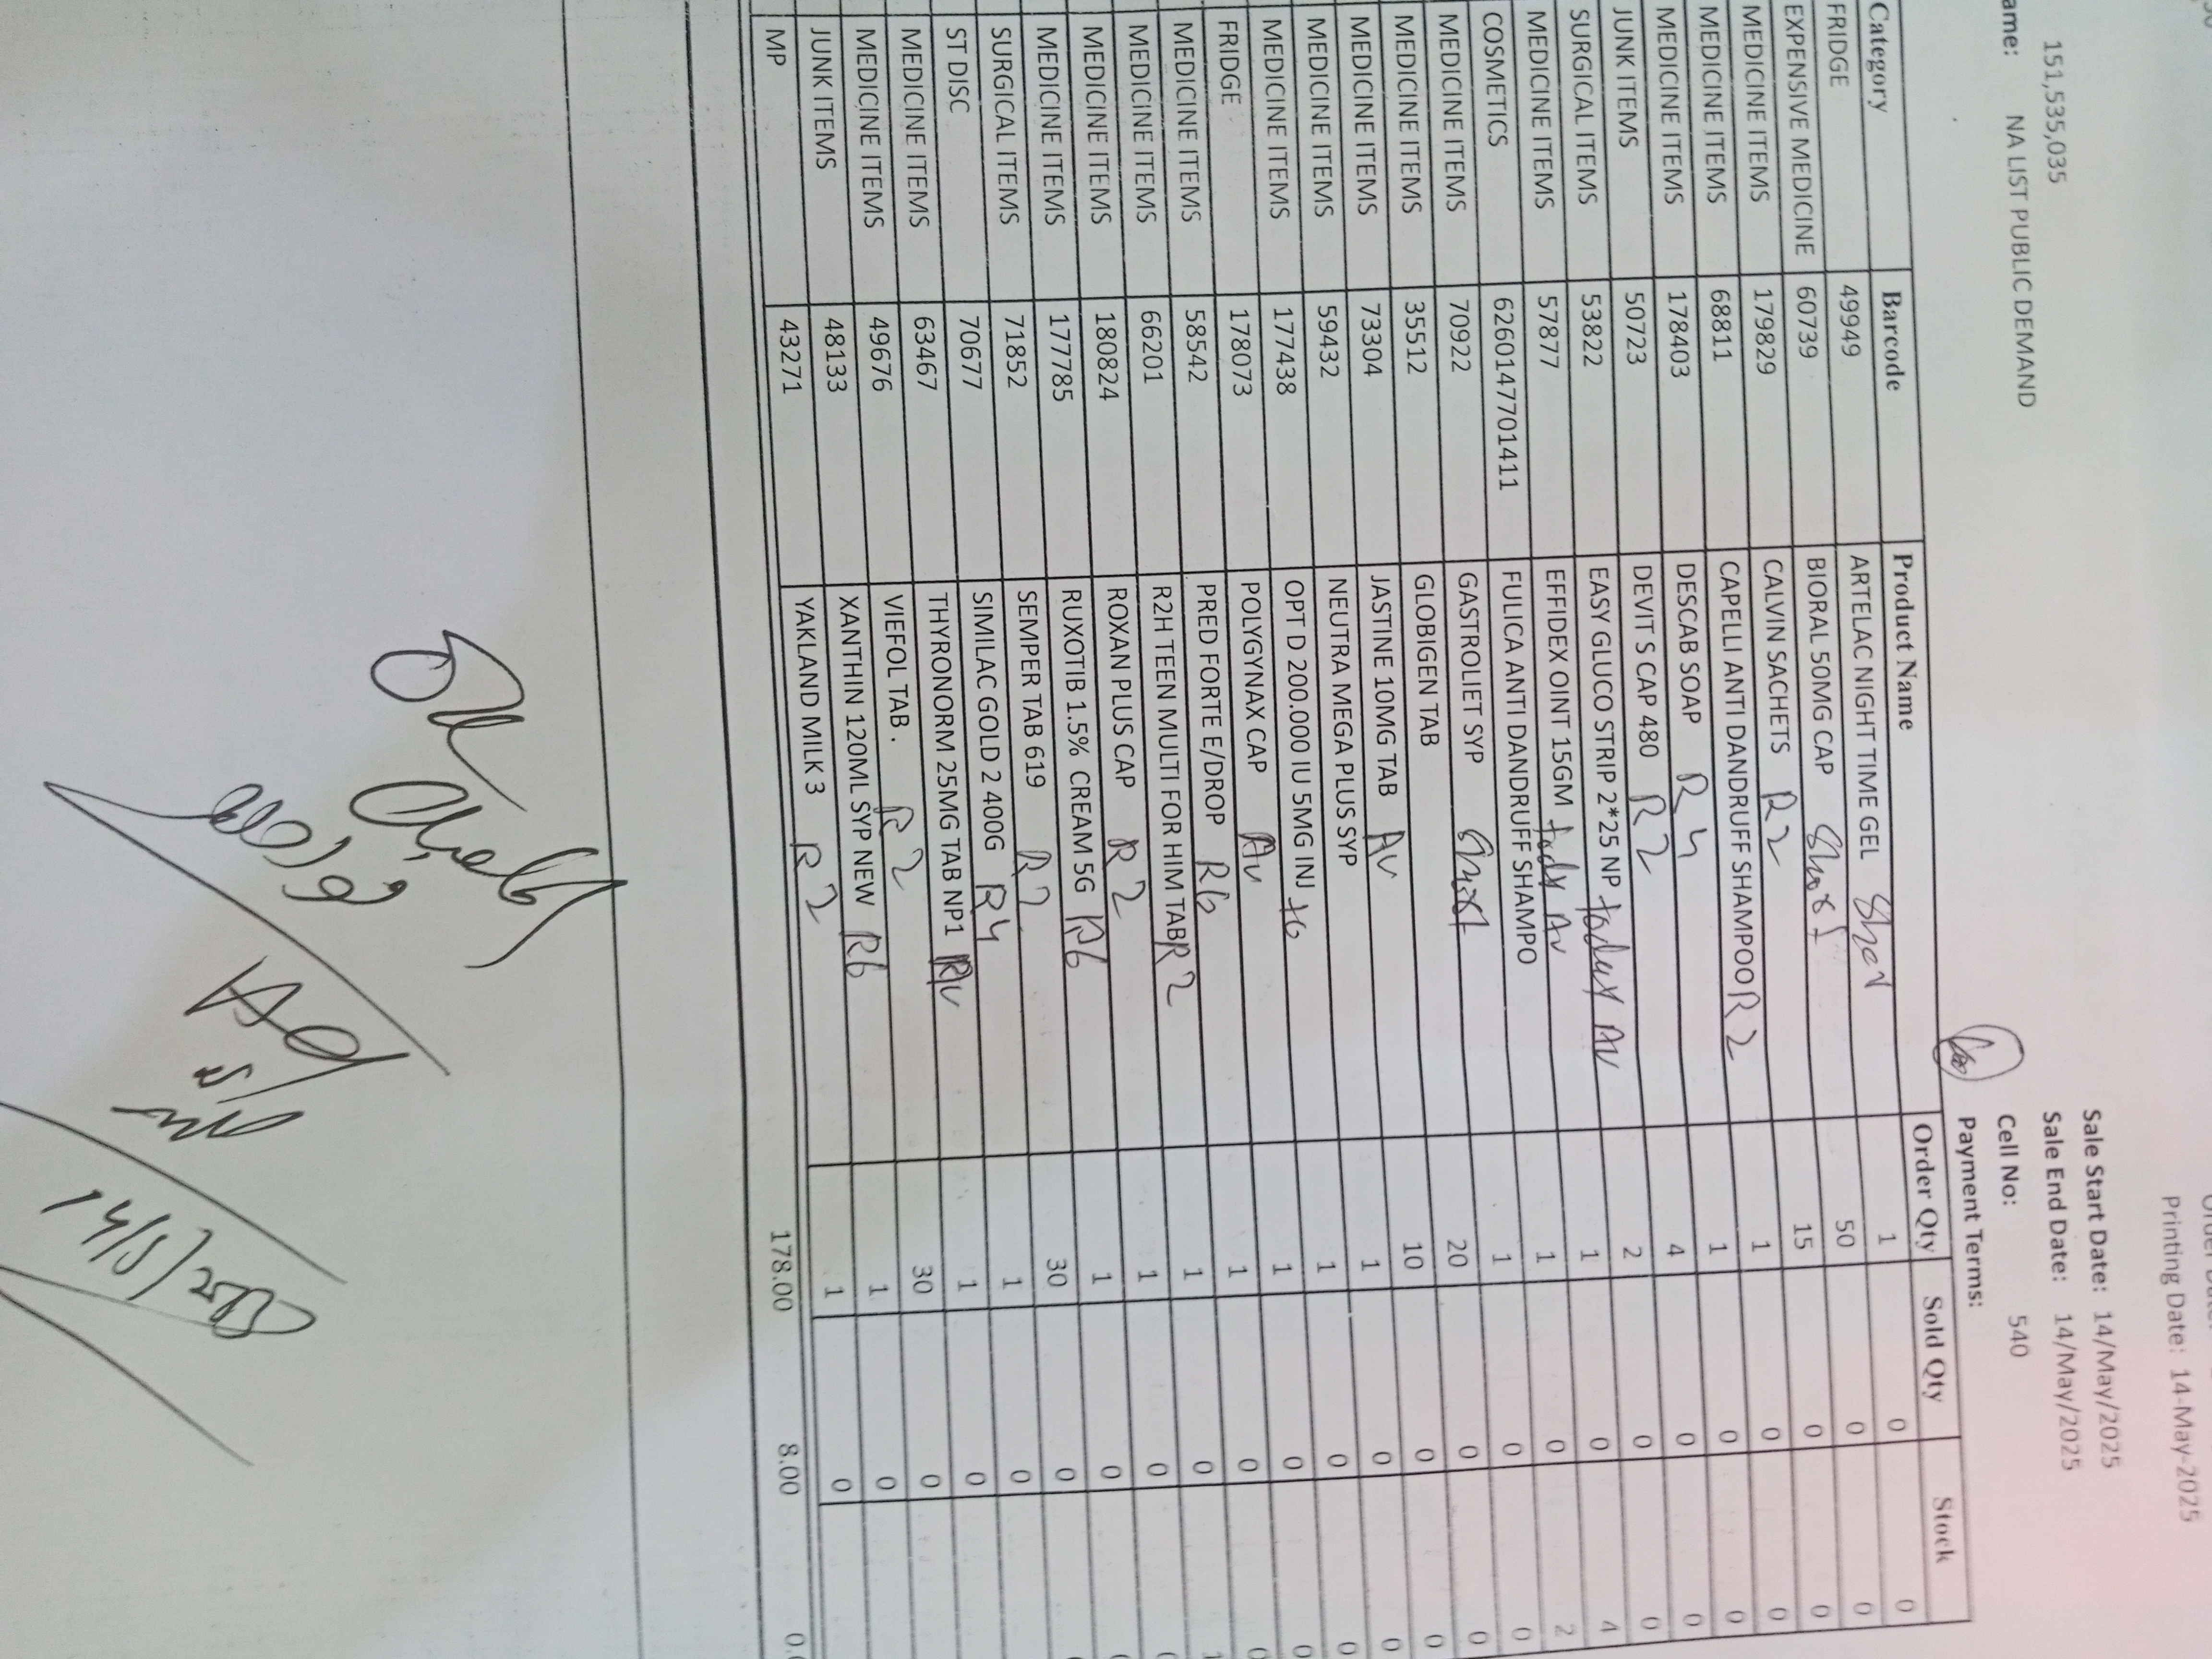 Printing Date: 14-May-2025
151,535,035
Sale Start Date: 14/May/2025
Sale End Date: 14/May/2025
ame: NA LIST PUBLIC DEMAND Cell No: 540
Payment Terms:
Category Barcode Product Name Order Qty Sold Qty Stock
FRIDGE 49949 ARTELAC NIGHT TIME GEL 1 0 0
EXPENSIVE MEDICINE 60739 BIORAL 50MG CAP Short 50 0 0
MEDICINE ITEMS 179829 CALVIN SACHETS R2 15 0 0
MEDICINE ITEMS 68811 CAPELLI ANTI DANDRUFF SHAMPOO R2 1 0 0
MEDICINE ITEMS 178403 DESCAB SOAP R4 1 0 0
JUNK ITEMS 50723 DEVIT S CAP 480 R2 4 0 0
SURGICAL ITEMS 53822 EASY GLUCO STRIP 2*25 NP today AV 2 0 0
MEDICINE ITEMS 57877 EFFIDEX OINT 15GM today Av 1 0 4
COSMETICS 6260147701411 FULICA ANTI DANDRUFF SHAMPO 1 0 2
MEDICINE ITEMS 70922 GASTROLIET SYP Short 1 0 0
MEDICINE ITEMS 35512 GLOBIGEN TAB 20 0 0
MEDICINE ITEMS 73304 JASTINE 10MG TAB AV 10 0 0
MEDICINE ITEMS 59432 NEUTRA MEGA PLUS SYP 1 0 0
MEDICINE ITEMS 177438 OPT D 200.000 IU 5MG INJ 1 0 0
FRIDGE 178073 POLYGYNAX CAP Av 1 0 0
MEDICINE ITEMS 58542 PRED FORTE E/DROP R6 1 0 0
MEDICINE ITEMS 66201 R2H TEEN MULTI FOR HIM TAB R2 1 0
MEDICINE ITEMS 180824 ROXAN PLUS CAP R2 1 0
MEDICINE ITEMS 177785 RUXOTIB 1.5% CREAM 5G R6 1 0
SURGICAL ITEMS 71852 SEMPER TAB 619 R2 30 0
ST DISC 70677 SIMILAC GOLD 2 400G R4 1 0
MEDICINE ITEMS 63467 THYRONORM 25MG TAB NP1 AV 1 0
MEDICINE ITEMS 49676 VIEFOL TAB . R2 30 0
JUNK ITEMS 48133 XANTHIN 120ML SYP NEW R6 1 0
MP 43271 YAKLAND MILK 3 R2 1 0
178.00 8.00